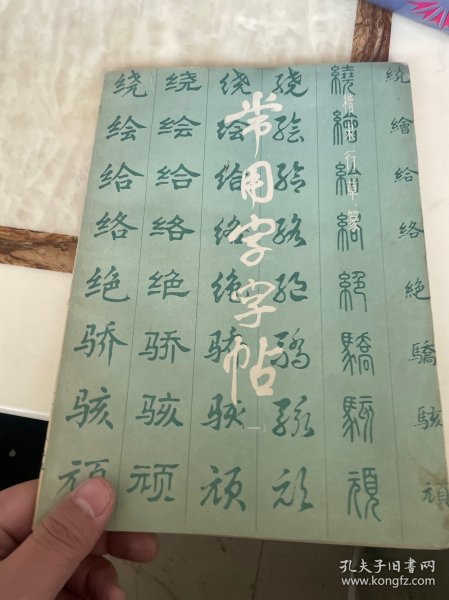 常用字字帖
(一)
楷隶行草篆
绕 绕 绕 绕 繞 繞
绘 绘 绘 绘 繪 繪
给 给 给 给 給 給
络 络 络 络 絡 絡
绝 绝 绝 绝 絕 絶
骄 骄 骄 骄 驕 驕
骇 骇 骇 骇 駭 駭
顽 顽 顽 顽 頑 頑
孔夫子旧书网
www.kongfz.com